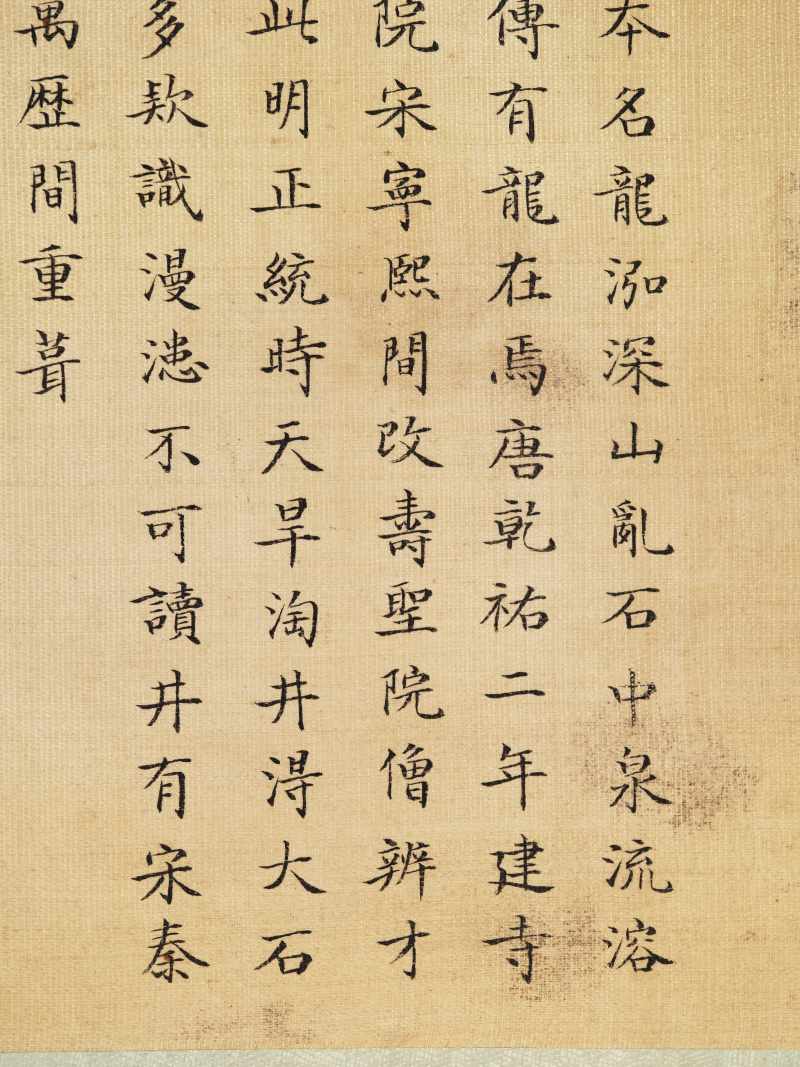 本名龍泓深山亂石中泉流溶
傳有龍在焉唐乾祐二年建寺
院宋寧熙間改壽聖院僧辨才
此明正統時天旱淘井淂大石
多欵識漫漶不可讀井有宋秦
萬歷間重葺